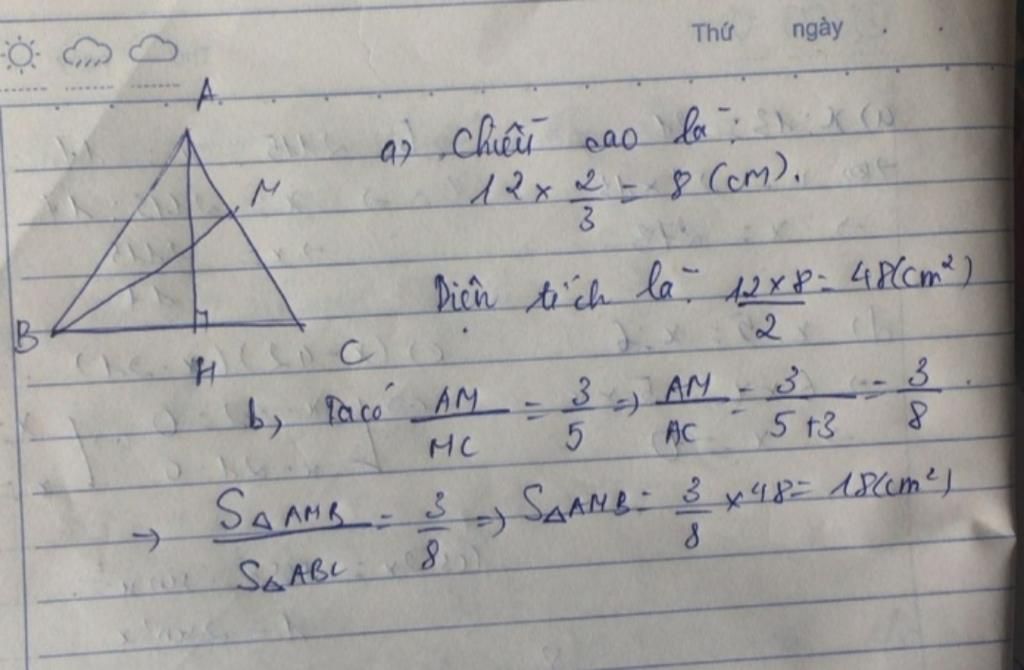 Thứ ngày
A
M
B
H
C
a) Chiều cao là:
12 × 2/3 = 8 (cm).
Diện tích là: 12 × 8/2 = 48 (cm²)
b, Ta có AM/MC = 3/5 => AM/AC = 3/5+3 = 3/8.
→ S△AMB/S△ABC = 3/8 => S△AMB = 3/8 × 48 = 18 (cm²)